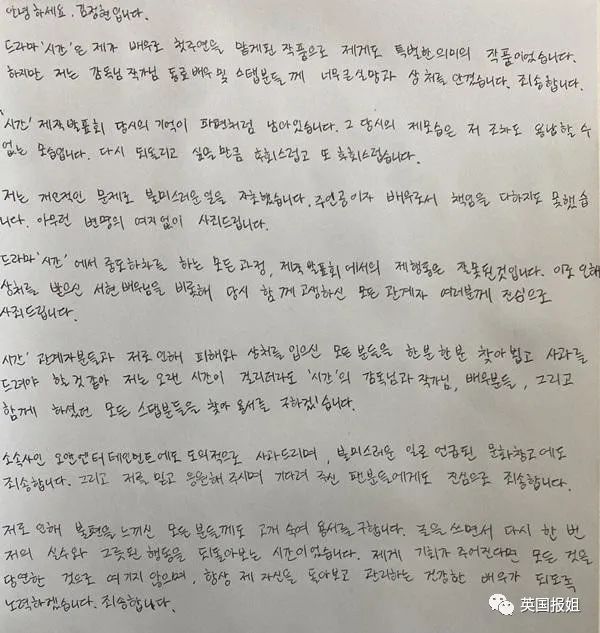 안녕하세요. 김정현입니다.
드라마 '시간'은 제가 배우로 첫주연을 맡게된 작품으로 제게도 특별한 의미의 작품이었습니다.
하지만 저는 감독님 작가님 동료배우 및 스탭분들께 너무 큰 실망과 상처를 안겼습니다. 죄송합니다.
'시간' 제작발표회 당시의 기억이 파편처럼 남아있습니다. 그 당시의 제모습은 저 조차도 용납할 수
없는 모습입니다. 다시 되돌리고 싶을 만큼 후회스럽고 또 후회스럽습니다.
저는 개인적인 문제로 불미스러운 일을 자초했습니다. 주인공이자 배우로서 책임을 다하지도 못했습
니다. 아무런 변명의 여지 없이 사죄드립니다.
드라마 '시간' 에서 중도하차를 하는 모든 과정, 제작발표회에서의 제행동은 잘못된것입니다. 이로 인해
상처를 받으신 서현 배우님을 비롯해 당시 함께 고생하신 모든 관계자 여러분께 진심으로
사죄드립니다.
시간' 관계자분들과 저로 인해 피해와 상처를 입으신 모든 분들을 한분 한분 찾아 뵙고 사과를
드려야 할 것 같아 저는 오랜 시간이 걸리더라도 '시간'의 감독님과 작가님, 배우분들, 그리고
함께 하셨던 모든 스탭분들을 찾아 용서를 구하겠습니다.
소속사인 오앤엔터테인먼트에도 도의적으로 사과드리며, 불미스러운 일로 언급된 문화창고에도
죄송합니다. 그리고 저를 믿고 응원해 주시며 기다려 주신 팬분들에게도 진심으로 죄송합니다.
저로 인해 불편을 느끼신 모든 분들께도 고개 숙여 용서를 구합니다. 글을 쓰면서 다시 한 번
저의 실수와 그릇된 행동을 되돌아보는 시간이었습니다. 제게 기회가 주어진다면 모든 것을
당연한 것으로 여기지 않으며, 항상 제 자신을 돌아보고 관리하는 건강한 배우가 되도록
노력하겠습니다. 죄송합니다.
英国报姐